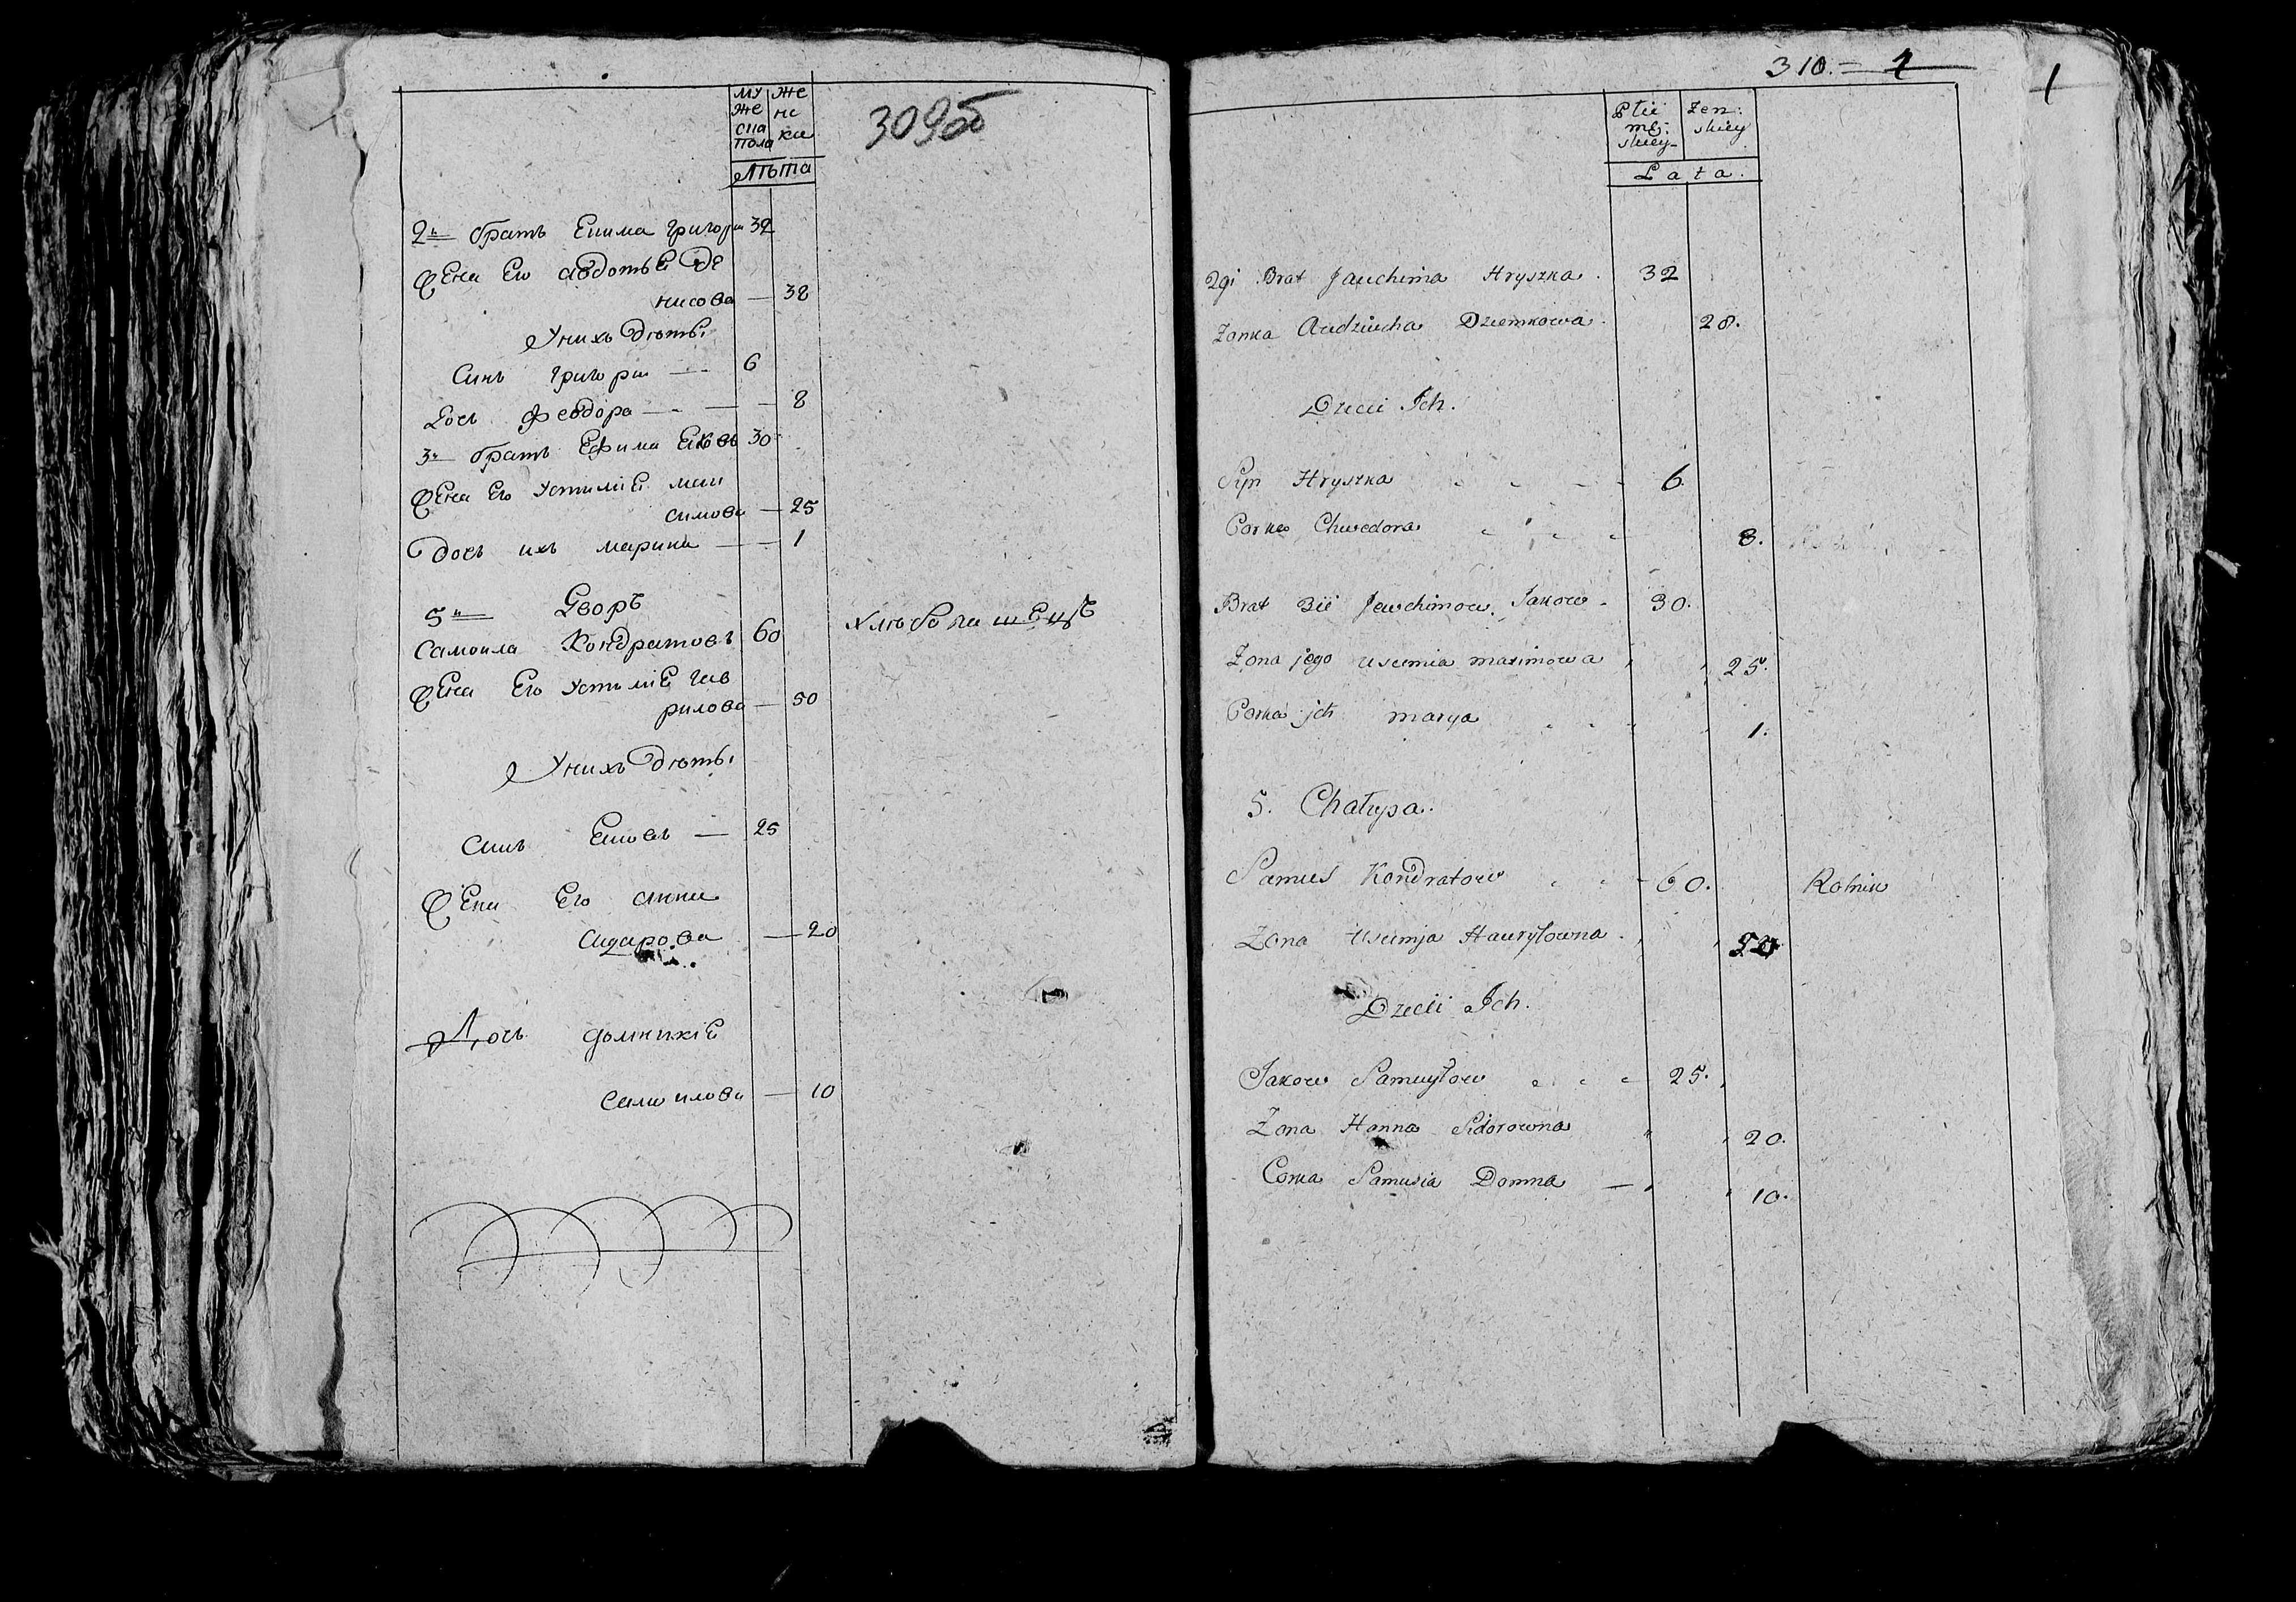 309об
му
же
ска
пола
же
нс
ка
лѣта
2й братъ Екима григори 32
Жена Его авдотьѣ Де
нисова — 38
У нихъ дѣтьі
Синъ григори — 6
Дочь Феодора — 8
3й братъ Ефима Ековъ 30
Жена Его Устимiѣ мак
симова — 25
дочь ихъ марина — 1
5й Дворъ
Самоила Кондратовъ 60 хлѣбопашецъ
Жена Его Устимiѣ гав
рилова — 50
У нихъ дѣтьі
Синъ Ековъ — 25
Жена Его анна
Сидарова — 20
Дочь домникiѣ
Самоилова — 10
310. = 1
1
Płii
mę:
skiey
żen:
skiey
Lata.
2gi Brat Jauchima Hryszka. 32
Zonka Audziucha Dziemkowa. 28.
Dzieci Ich.
Syn Hryszka 6.
Corka Chwedora 8.
Brat 3ii Jauchimow Jakow. 30.
Zona jego Uscimia maximowa 25.
Corka ich marya 1.
5. Chałupa.
Samuś Kondratow 60. Rolnik
Zona Uscimja Hauryłowna. 50
Dzieci Ich.
Jakow Samuyłow 25.
Zona Hanna Sidorowna 20.
Corka Samusia Domna — 10.